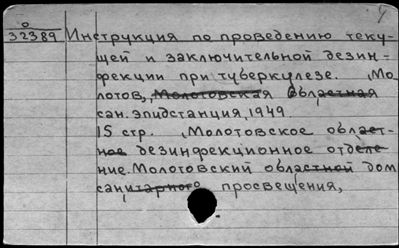 о
32389 Инструкция по проведению теку-
щей и заключительной дезин=
фекции при туберкулезе. Мо-
лотов, Молотовская областная
сан. эпидстанция, 1949.
15 стр. Молотовское област-
ное дезинфекционное отделе
ние. Молотовский областной дом
санитарного просвещения,